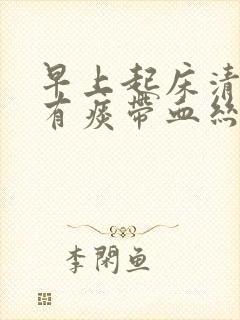 早上起床清
有痰帶血絲
李閑魚